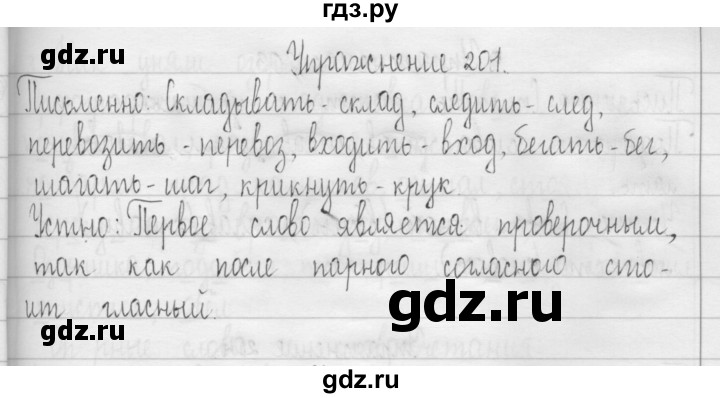 гдз.ру
gdz.ru
Упражнение 201.
Письменно: Складывать - склад, следить - след,
перевозить - перевоз, входить - вход, бегать - бег,
шагать - шаг, крикнуть - крук
Устно: Первое слово является проверочным,
так как после парного согласного сто-
ит гласный.
gdz.ru
gdz.ru
gdz.ru